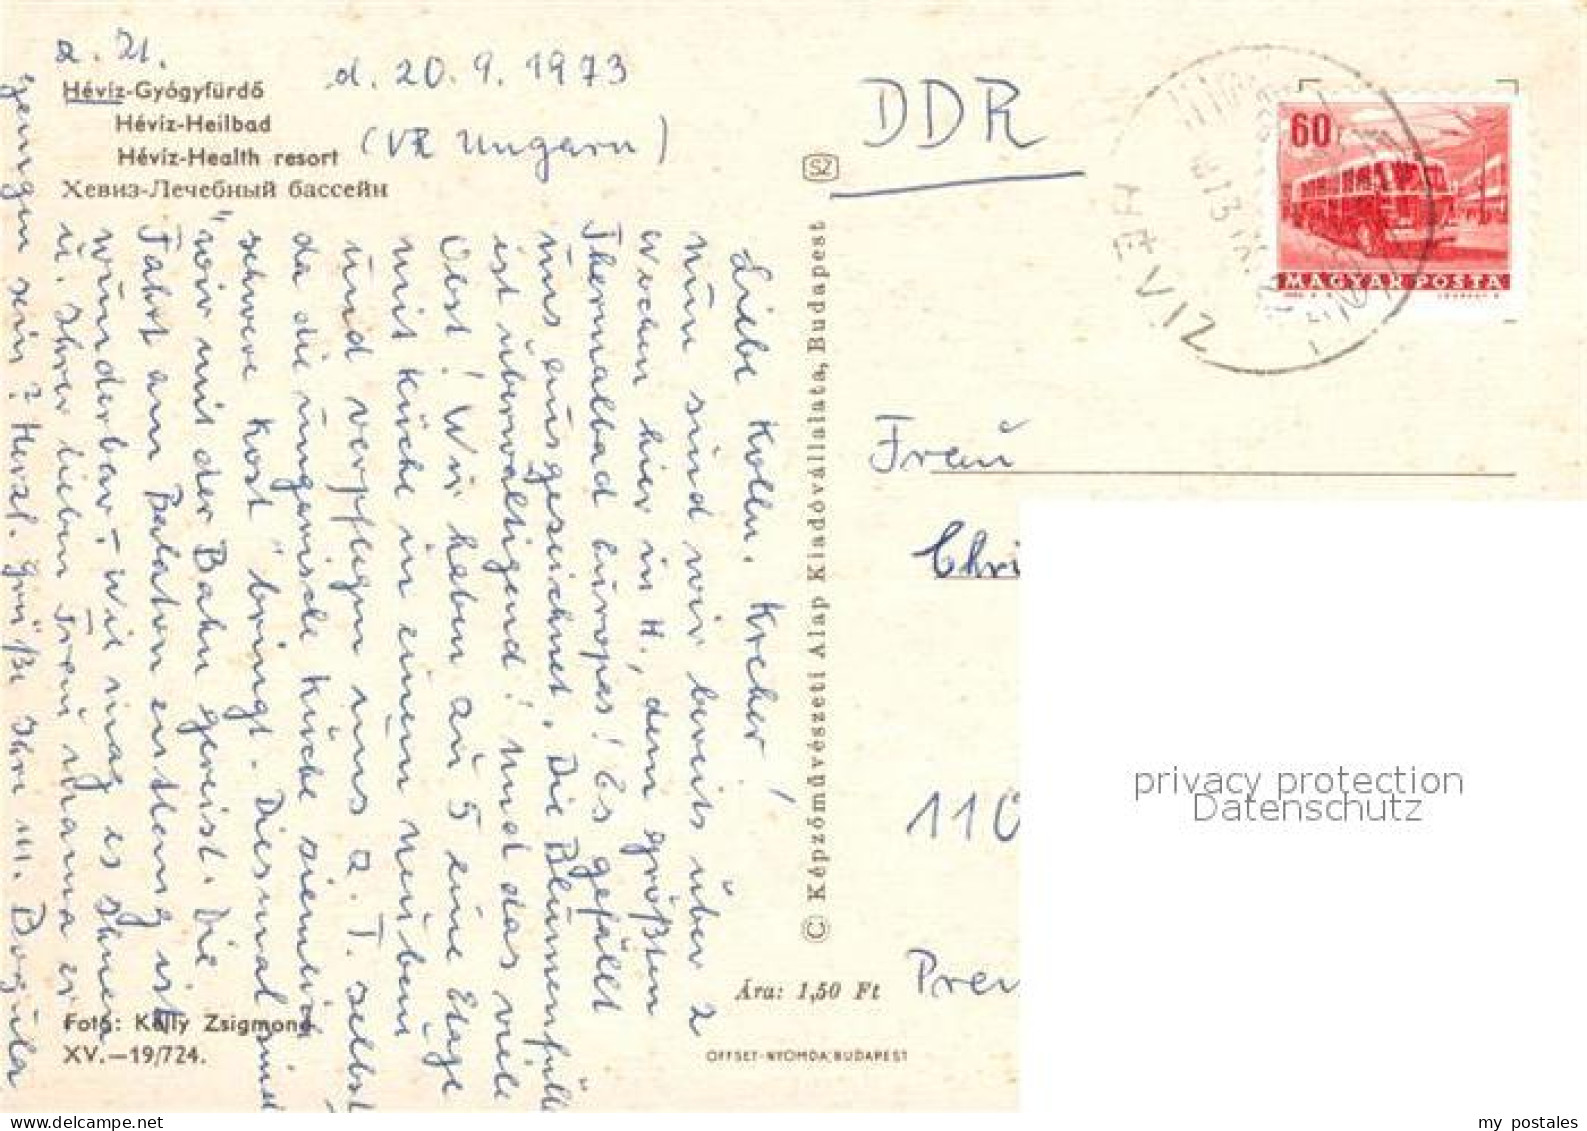 z. Zt.
d. 20.9.1973
Hévíz-Gyógyfürdő
Hévíz-Heilbad
Hévíz-Health resort
(VR Ungarn)
Хевиз-Лечебный бассейн
Liebe Kolln. Kreher!
Nun sind wir bereits über 2
Wochen hier in H., dem größten
Thermalbad Europas! Es gefällt
uns ausgezeichnet. Die Blumenfülle
ist überwältigend! Und das viele
Obst! Wir haben zu 5 eine Etage
mit Küche in einem Neubau
und verpflegen uns z. T. selbst
da die ungarische Küche ziemlich
schwere Kost "bringt. Diesmal sind
wir mit der Bahn gereist. Die
Fahrt am Balaton entlang ist
wunderbar. - Wie mag es Ihnen
u. Ihrer lieben Frau Mama er-
gangen sein? Herzl. Grüße Ihre
Foto: Kelly Zsigmond
XV.—19/724.
© Képzőművészeti Alap Kiadóvállalata, Budapest
SZ
Ára: 1,50 Ft
OFFSET-NYOMDA, BUDAPEST
DDR
HÉVÍZ
60f
MAGYAR POSTA
Frau
Chri
110
Pren
privacy protection
Datenschutz
my postales